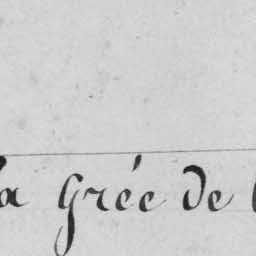 la Grée de